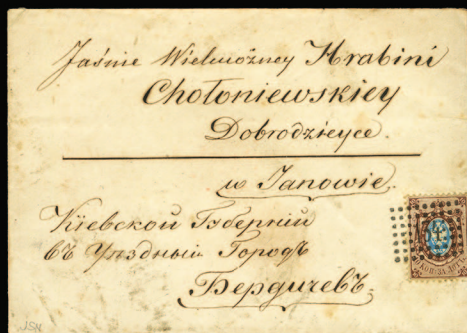 Jaśnie Wielmożney Hrabini
Chołoniewskiey
Dobrodzieyce
w Janowie.
Кіевской Губерній
въ Уѣздный Городъ
Бердичевъ.